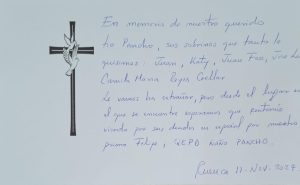 En memoria de nuestro querido
tío Pancho, sus sobrinos que tanto lo
quisimos: Juan, Katy, Juan Fco, José
Camila María Reyes Cuéllar
Le vamos ha extrañar, pero desde el lugar en
el que se encuentre esperamos que continúe
viendo por sus deudos en especial por nuestro
primo Felipe, QEPD ÑAÑO PANCHO.
Cuenca 11-Nov. 2024